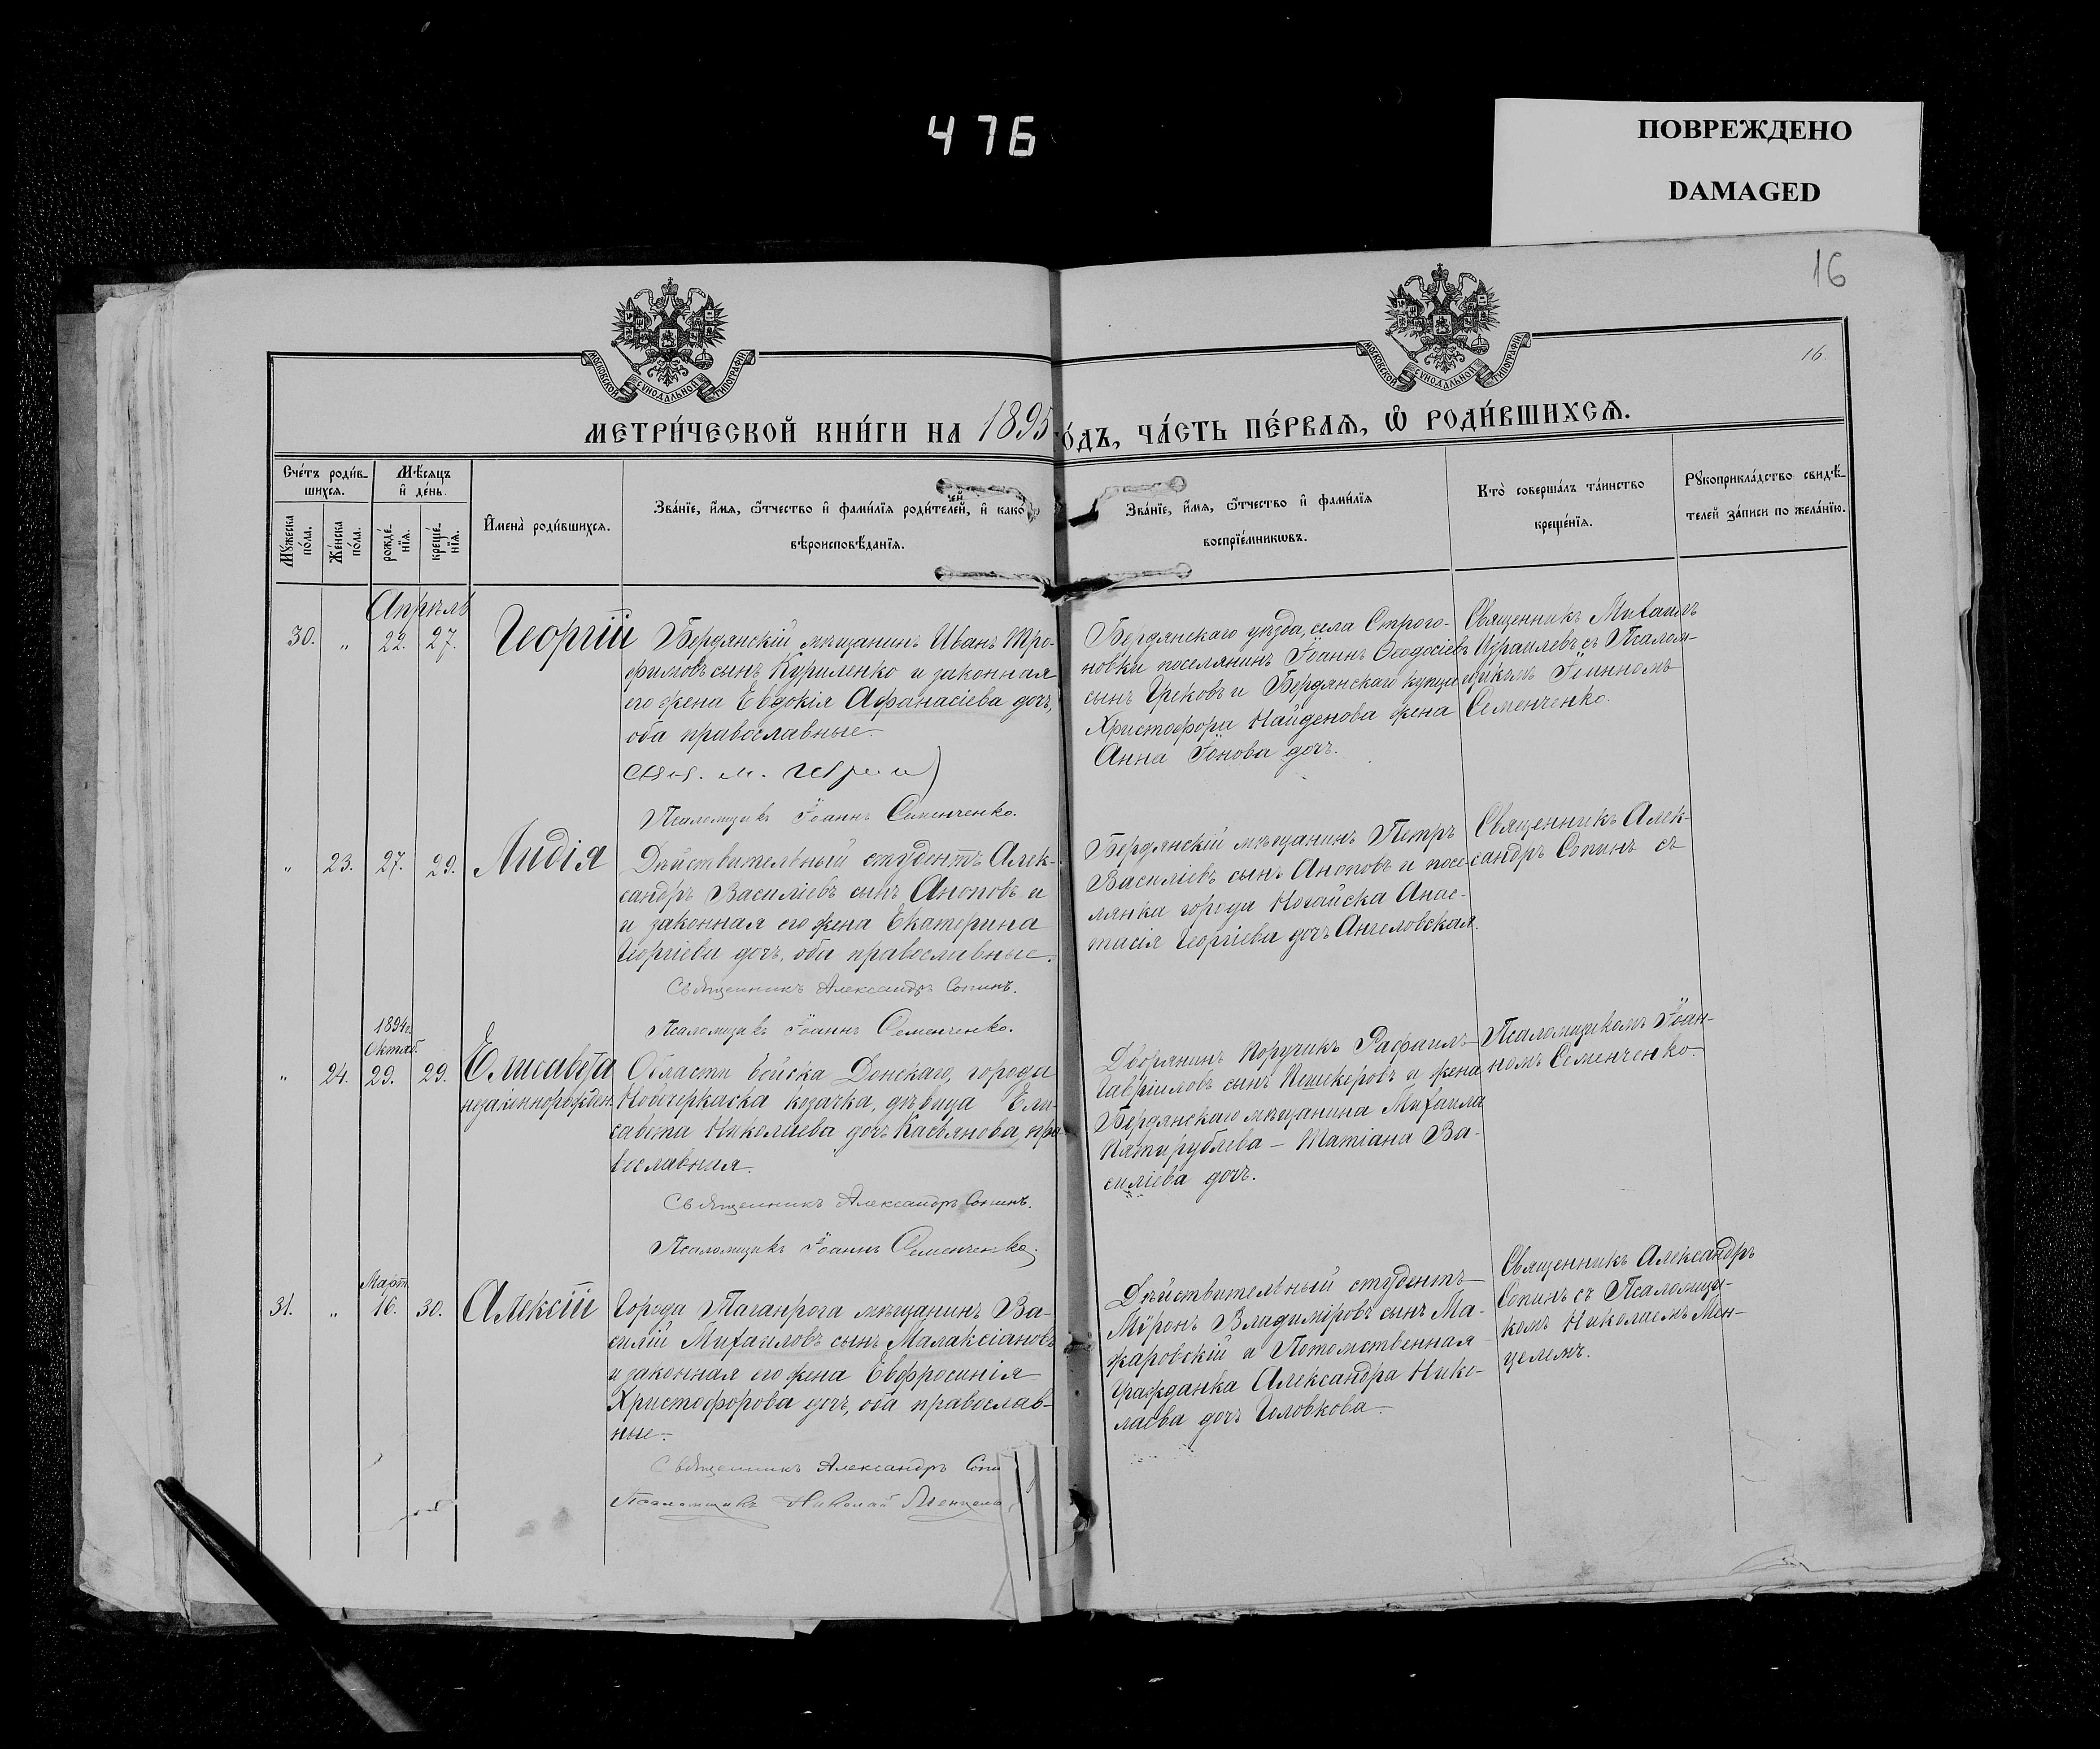 476
ПОВРЕЖДЕНО
DAMAGED
16
МОСКОВСКОЙ СѴНОДАЛЬНОЙ ТИПОГРАФІИ
МОСКОВСКОЙ СѴНОДАЛЬНОЙ ТИПОГРАФІИ
16.
МЕТРИ́ЧЕСКОЙ КНИ́ГИ НА 1895 О́ДЪ, ЧА́СТЬ ПЕ́РВАЯ, Ѽ РОДИ́ВШИХСЯ.
Сче́тъ роди́в-
шихся.
Мѣ́сяцъ
и҆ де́нь.
Мꙋ́жеска по́ла.
Же́нска по́ла.
рожде́-
нїя.
креще́-
нїя.
И҆мена̀ роди́вшихся.
Зва́нїе, и҆́мя, ѻ҆́тчество и҆ фами́лїя роди́телей, и҆ како́
ей
вѣроисповѣ́данїя.
Зва́нїе, и҆́мя, ѻ҆́тчество и҆ фами́лїя
воспрїе́мникѡвъ.
Кто̀ соверша́лъ та́инство
креще́нїя.
Рꙋкоприкла́дство свидѣ́-
телей за́писи по жела́нїю.
Апрѣль
30. " 22. 27. Георгій
Бердянскій мѣщанинъ Иванъ Тро-
фимовъ сынъ Куриленко и законная
его жена Евдокія Афанасіева дочь,
оба православные.
Псаломщикъ Іоаннъ Семенченко.
Бердянскаго уѣзда, села Строго-
новки поселянинъ Іоаннъ Ѳеодосіевъ
сынъ Грековъ и Бердянскаго купца
Христофора Найденова жена
Анна Іонова дочь.
Священникъ Михаилъ
Израилевъ съ Псалом-
щикомъ Іоанномъ
Семенченко.
" 23. 27. 29. Лидія
Дѣйствительный студентъ Алек-
сандръ Василіевъ сынъ Аноповъ и
и законная его жена Екатерина
Георгіева дочь, оба православные.
Священникъ Александръ Сопинъ.
Псаломщикъ Іоаннъ Семенченко.
Бердянскій мѣщанинъ Петръ
Василіевъ сынъ Аноповъ и посе-
лянка города Ногайска Анас-
тасія Георгіева дочь Ангеловская.
Священникъ Алек-
сандръ Сопинъ съ
1894 г.
Октяб.
" 24. 29. 29. Елисавета
незаконнорожден.
Области Войска Донскаго, города
Новочеркаска козачка, дѣвица Ели-
савета Николаева дочь Касьянова, пра-
вославная.
Священникъ Александръ Сопинъ.
Псаломщикъ Іоаннъ Семенченко.
Дворянинъ Поручикъ Рафаилъ
Гавріиловъ сынъ Кешекеровъ и жена
Бердянскаго мѣщанина Михаила
Пятирублева - Татіана Ва-
силіева дочь.
Псаломщикомъ Іоан-
номъ Семенченко.
Март.
31. " 16. 30. Алексій
Города Таганрога мѣщанинъ Ва-
силій Михаиловъ сынъ Малаксіановъ
и законная его жена Евфросинія
Христофорова дочь, оба православ-
ные.
Священникъ Александръ Сопи
Псаломщикъ Николай Менцель
Дѣйствительный студентъ
Мѵронъ Владиміровъ сынъ Ма-
жаровскій и Потомственная
Гражданка Александра Нико-
лаева дочь Головкова.
Священникъ Александръ
Сопинъ съ Псаломщи-
комъ Николаемъ Мен-
целемъ.